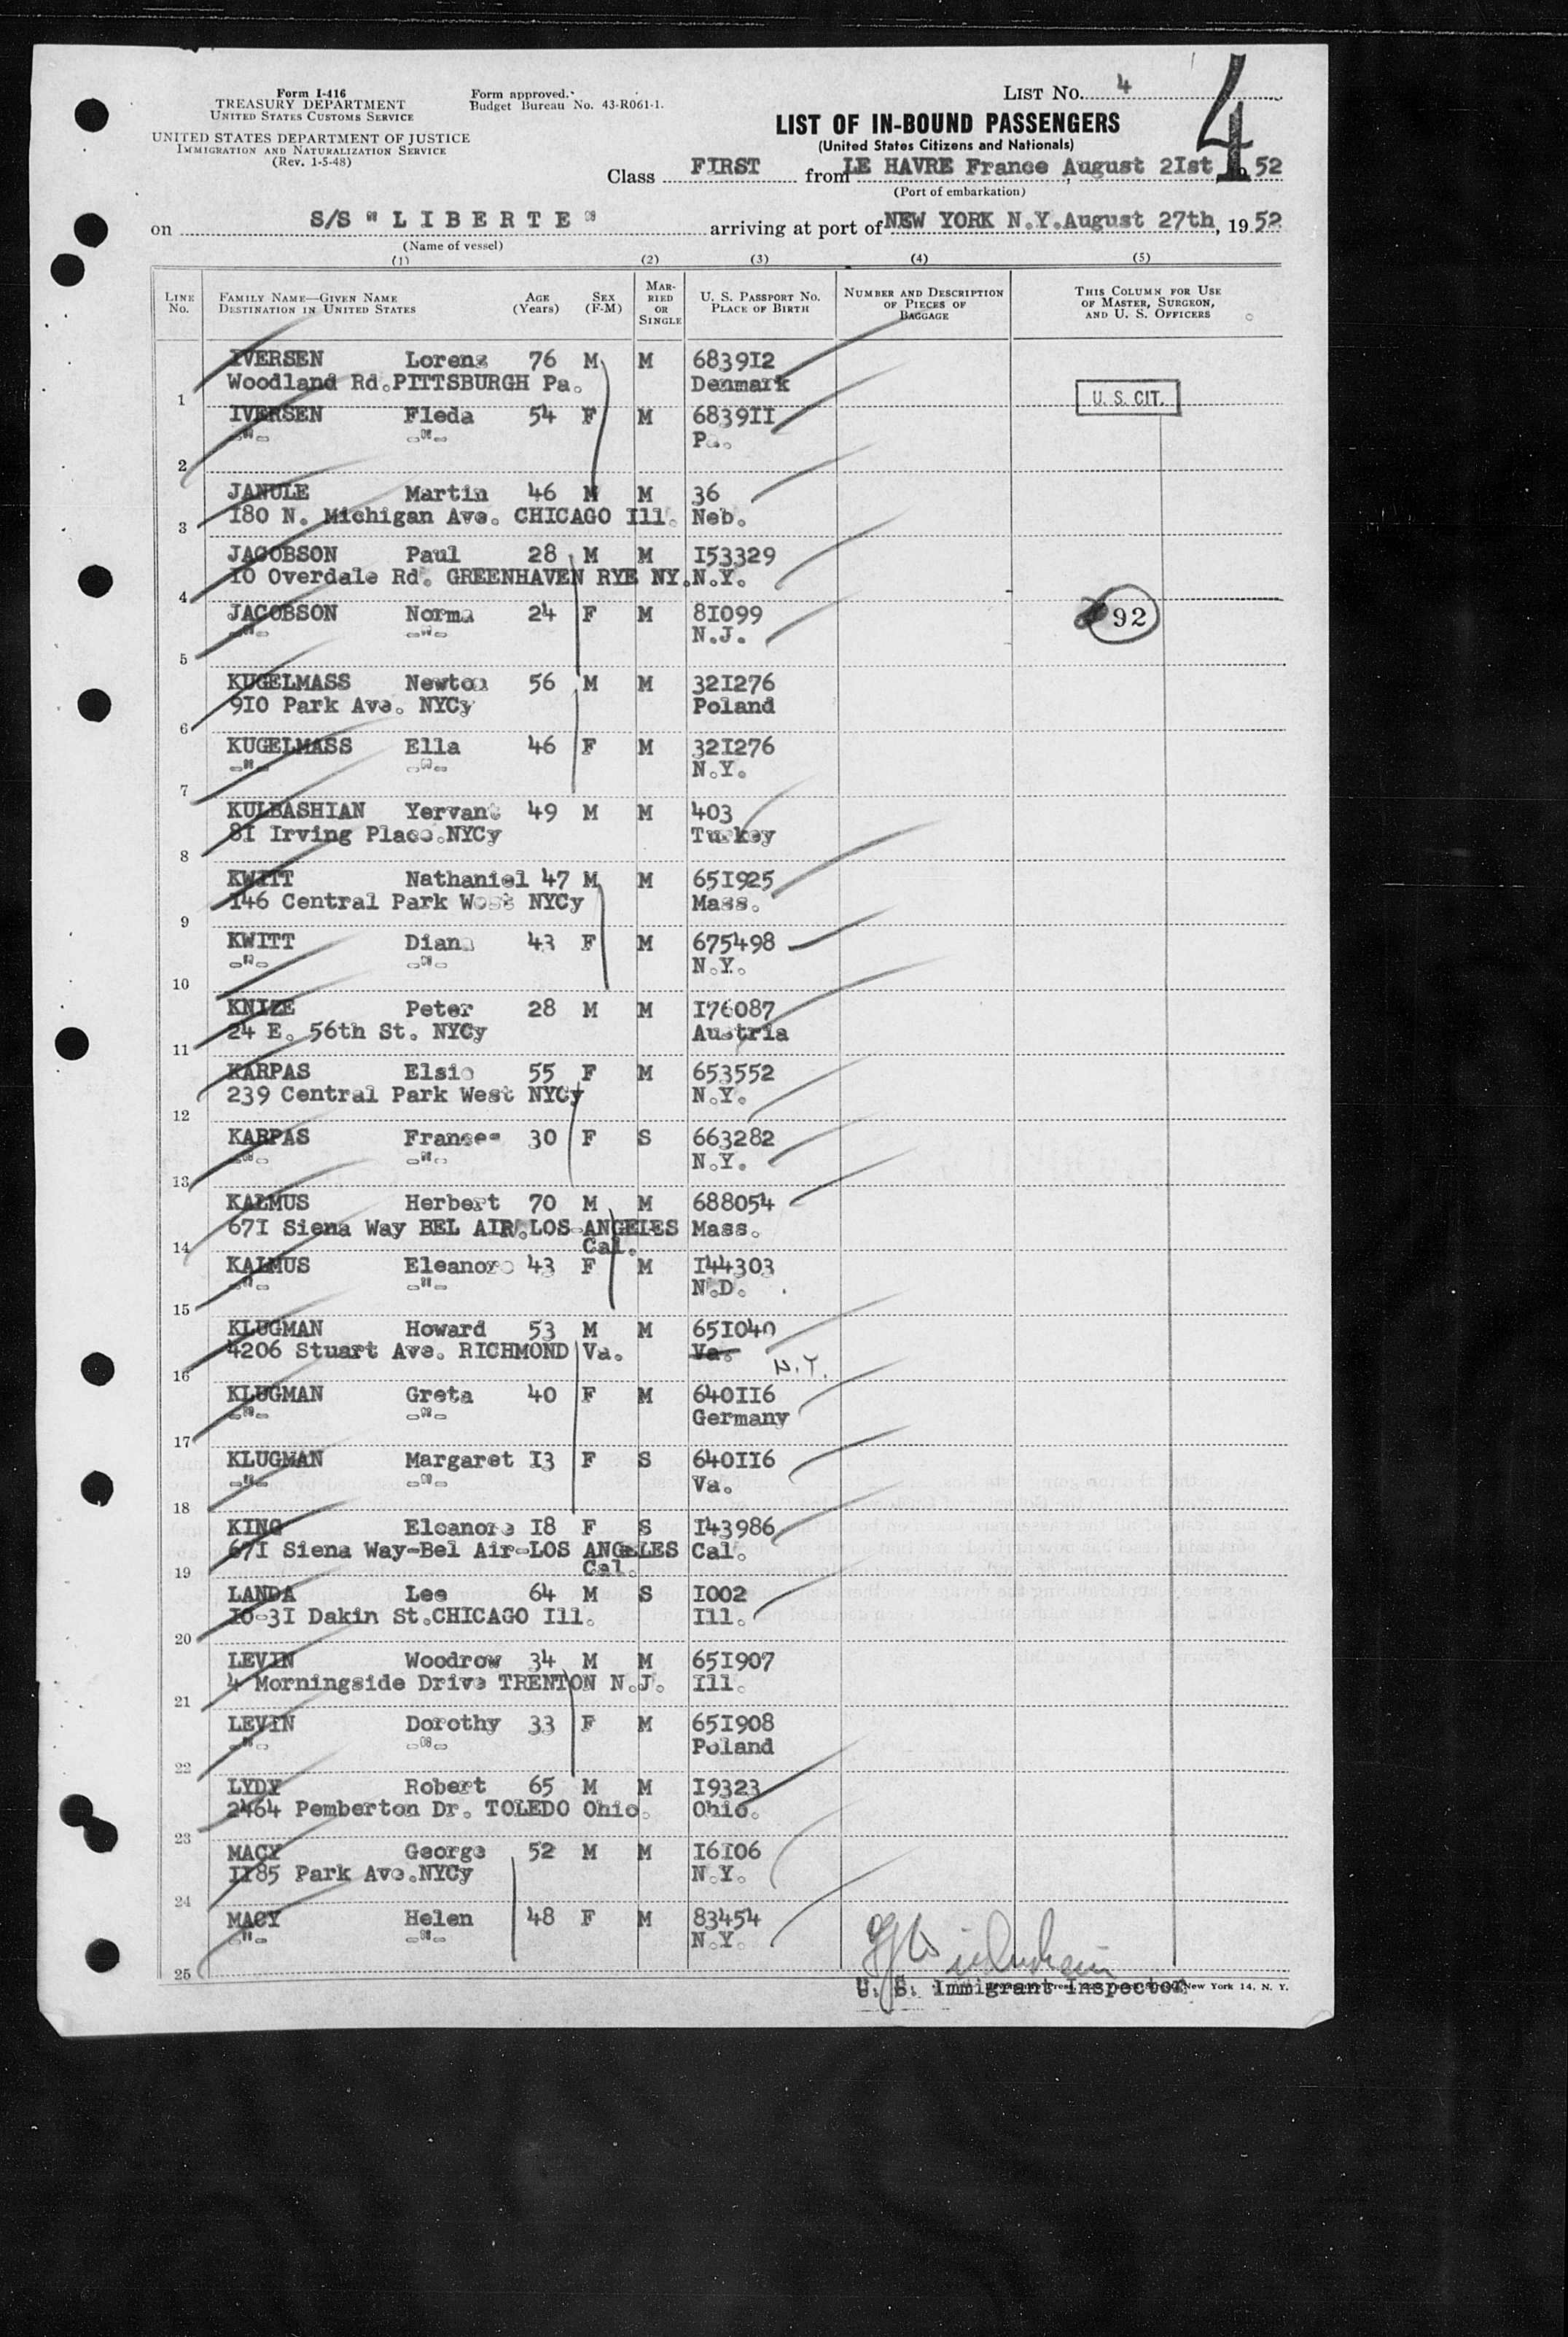 Form I-416
TREASURY DEPARTMENT
UNITED STATES CUSTOMS SERVICE
UNITED STATES DEPARTMENT OF JUSTICE
IMMIGRATION AND NATURALIZATION SERVICE
(Rev. 1-5-48)
Form approved.
Budget Bureau No. 43-R061-1.
LIST NO. 4
4
LIST OF IN-BOUND PASSENGERS
(United States Citizens and Nationals)
Class FIRST from LE HAVRE France, August 2Ist, 52
(Port of embarkation)
on S/S " L I B E R T E " arriving at port of NEW YORK N.Y. August 27th, 1952
(Name of vessel)
(1) (2) (3) (4) (5)
LINE NO. FAMILY NAME—GIVEN NAME DESTINATION IN UNITED STATES AGE (Years) SEX (F-M) MARRIED OR SINGLE U. S. PASSPORT NO. PLACE OF BIRTH NUMBER AND DESCRIPTION OF PIECES OF BAGGAGE THIS COLUMN FOR USE OF MASTER, SURGEON, AND U. S. OFFICERS
IVERSEN Lorenz 76 M M 6839I2
1 Woodland Rd.PITTSBURGH Pa. Denmark U. S. CIT.
IVERSEN Fleda 54 F M 6839II
2 -"- -"- Pa.
JANULE Martin 46 M M 36
3 I80 N. Michigan Ave. CHICAGO Ill. Neb.
JACOBSON Paul 28 M M I53329
4 I0 Overdale Rd. GREENHAVEN RYE NY. N.Y.
JACOBSON Norma 24 F M 8I099 92
5 -"- -"- N.J.
KUGELMASS Newton 56 M M 32I276
6 9I0 Park Ave. NYCy Poland
KUGELMASS Ella 46 F M 32I276
7 -"- -"- N.Y.
KULBASHIAN Yervant 49 M M 403
8 8I Irving Place.NYCy Turkey
KWITT Nathaniel 47 M M 65I925
9 I46 Central Park West NYCy Mass.
KWITT Diana 43 F M 675498
10 -"- -"- N.Y.
KNIZE Peter 28 M M I76087
11 24 E. 56th St. NYCy Austria
KARPAS Elsie 55 F M 653552
12 239 Central Park West NYCy N.Y.
KARPAS Frances 30 F S 663282
13 -"- -"- N.Y.
KALMUS Herbert 70 M M 688054
14 67I Siena Way BEL AIR.LOS-ANGELES Cal. Mass.
KALMUS Eleanore 43 F M I44303
15 -"- -"- N.D.
KLUGMAN Howard 53 M M 65I040
16 4206 Stuart Ave. RICHMOND Va. Va. N.Y.
KLUGMAN Greta 40 F M 640II6
17 -"- -"- Germany
KLUGMAN Margaret I3 F S 640II6
18 -"- -"- Va.
KING Eleanore I8 F S I43986
19 67I Siena Way-Bel Air-LOS ANGELES Cal. Cal.
LANDA Lee 64 M S I002
20 I0-3I Dakin St.CHICAGO Ill. Ill.
LEVIN Woodrow 34 M M 65I907
21 4 Morningside Drive TRENTON N.J. Ill.
LEVIN Dorothy 33 F M 65I908
22 -"- -"- Poland
LYDY Robert 65 M M I9323
23 2464 Pemberton Dr. TOLEDO Ohio. Ohio.
MACY George 52 M M I6I06
24 II85 Park Ave.NYCy N.Y.
MACY Helen 48 F M 83454
25 -"- -"- N.Y.
U. S. Immigrant Inspector New York 14, N. Y.